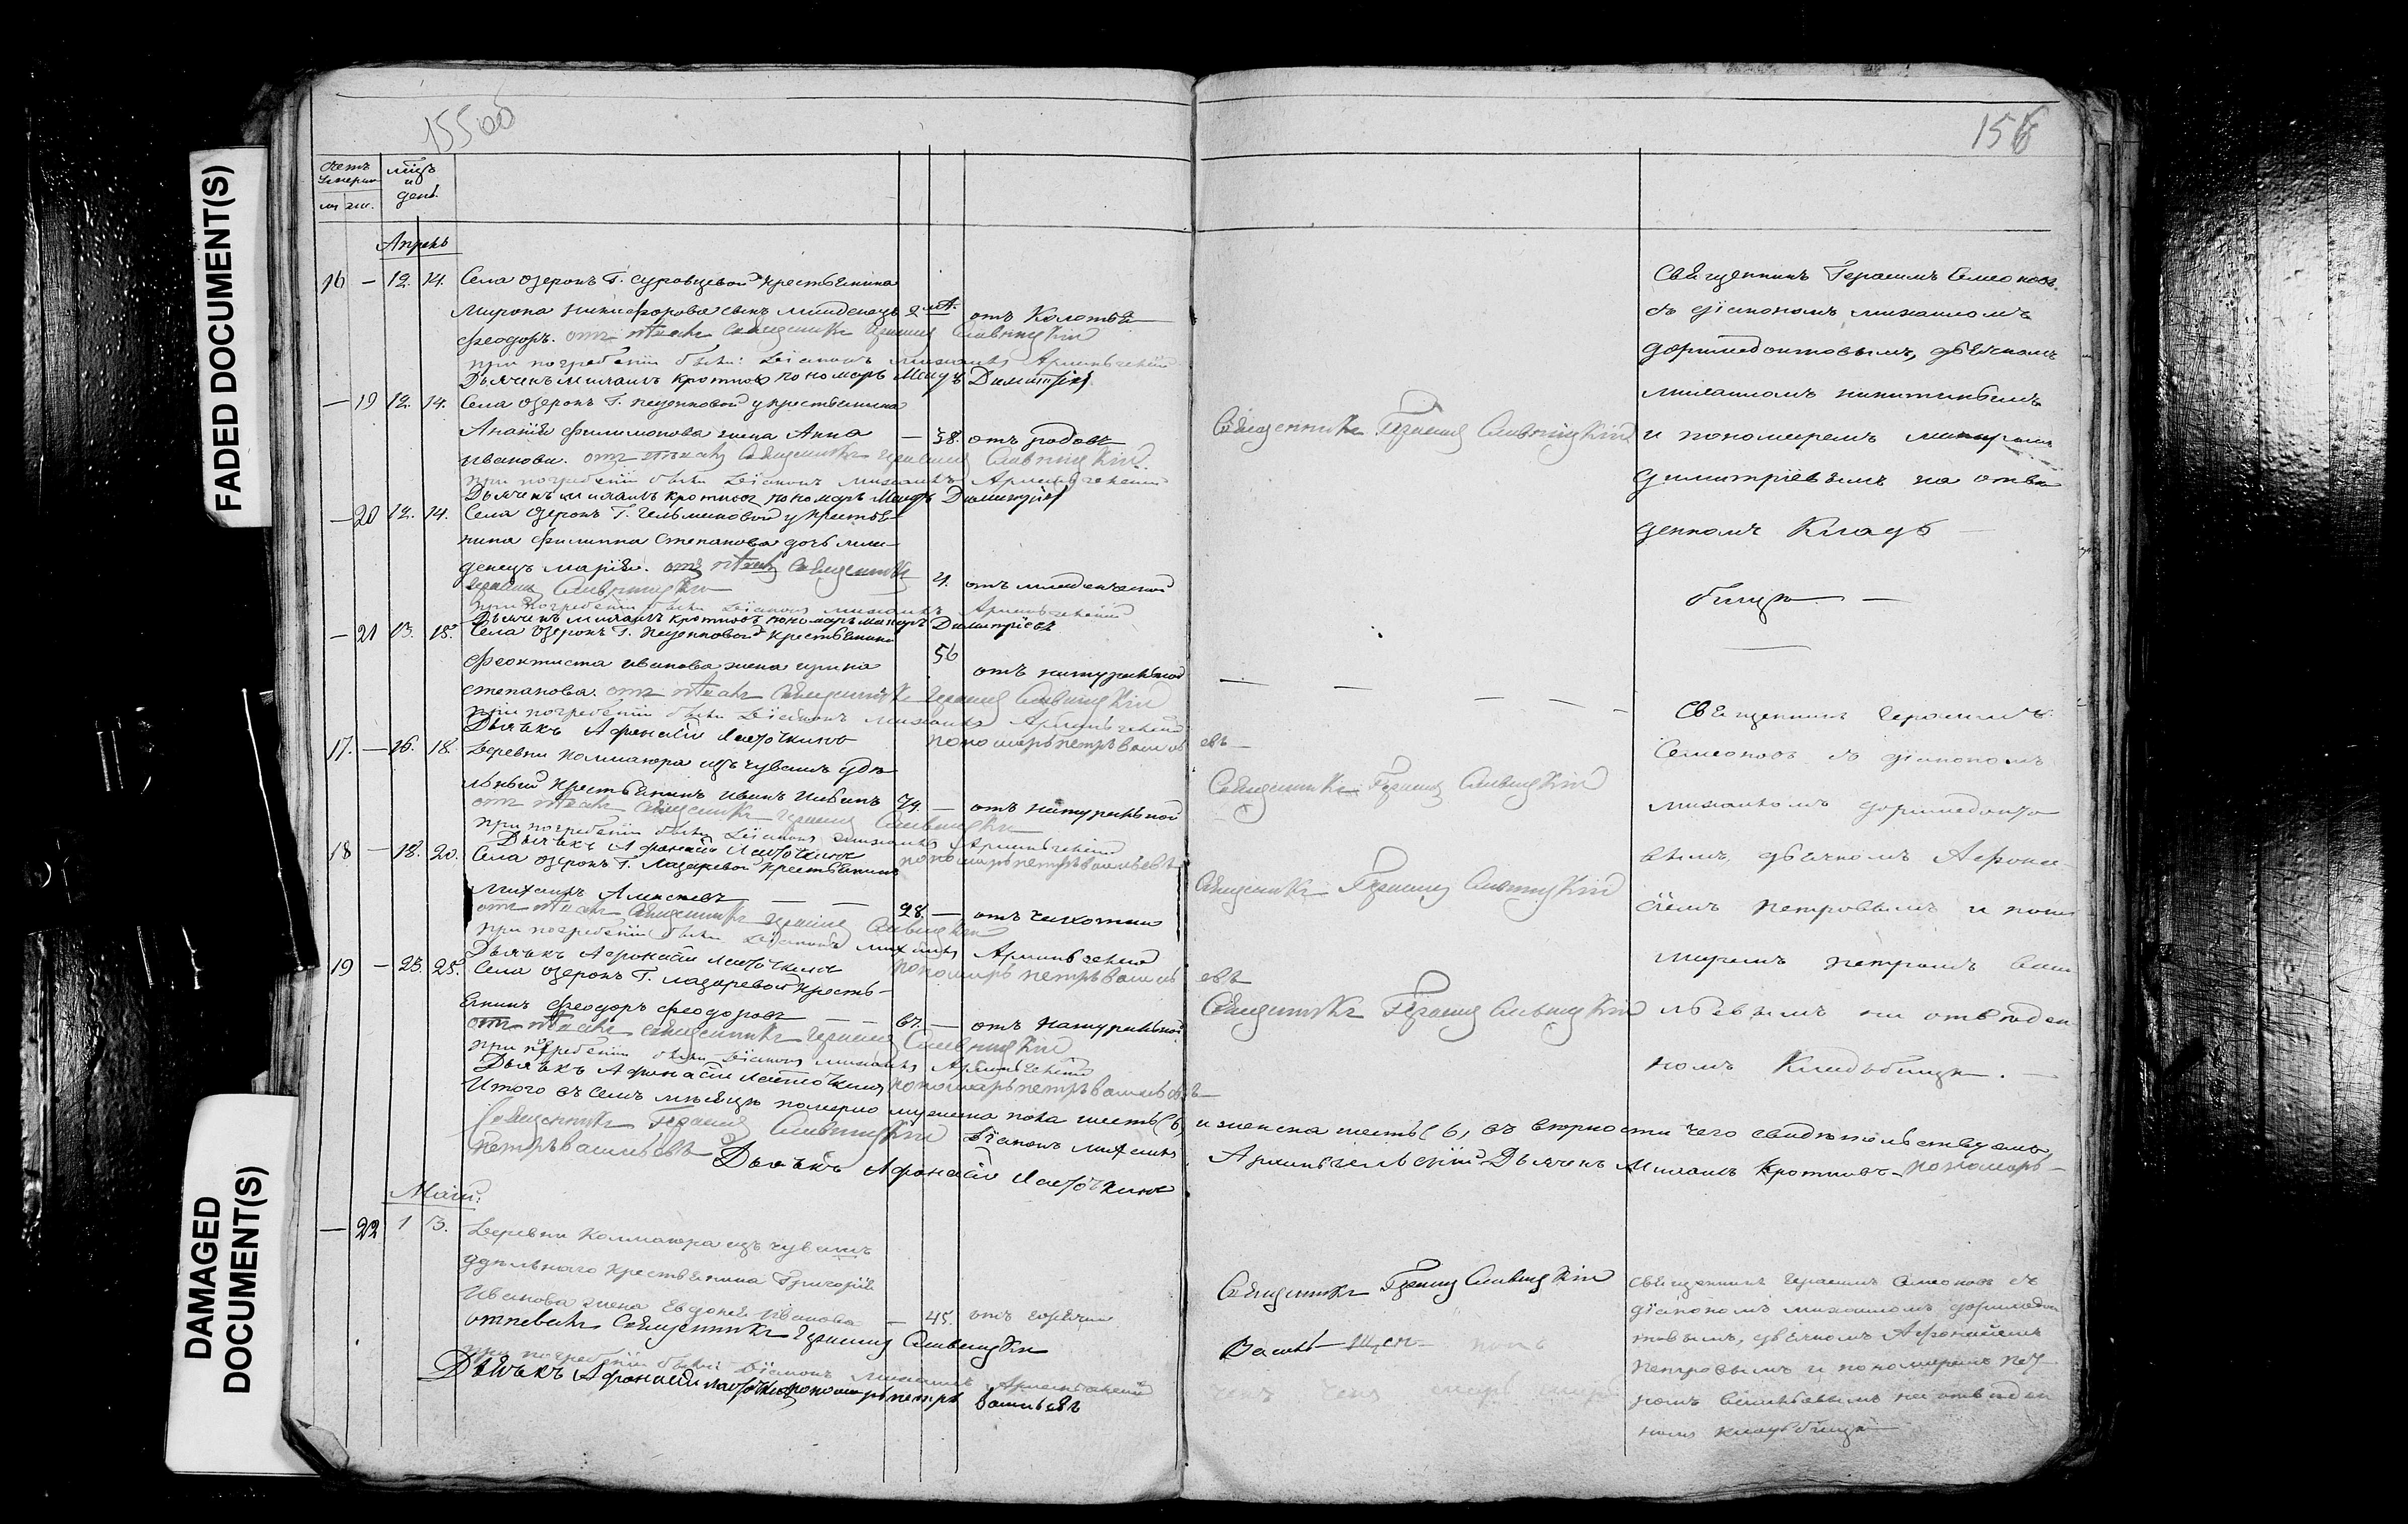 FADED DOCUMENT(S)
DAMAGED DOCUMENT(S)
155об
156
Счетъ
умерш
м. ж.
мцъ
и
день.
Апрель
16 — 12. 14. Села Озерокъ Г. Суровцевой крестьянина
Мирона Никифорова сынъ младенецъ 2 лет. отъ Колотья
Феодоръ. отпѣвалъ священникъ Герасимъ
при погребеніи были: діаконъ Михаилъ Архангельскій
Дьячекъ Михаилъ Кротковъ пономарь Димитріев
— 19 12. 14. Села Озерокъ Г. Пеценковой у крестьянина
Ананіи Филимонова жена Анна — 38. отъ родовъ
Иванова. отпѣвалъ священникъ Герасимъ
при погребеніи были діаконъ Михаилъ Архангельскій
Дьячекъ Михаилъ Кротковъ пономарь Димитріев
— 20 12. 14. Села Озерокъ Г. у крестья
нина Филиппа Степанова дочь мла-
денецъ Марія. отпѣвалъ священникъ 4. отъ младенческой
Герасимъ
при погребеніи были діаконъ Михаилъ Архангельскій
Дьячекъ Михаилъ Кротковъ пономарь Димитріевъ
— 21 13. 15. Села Озерокъ Г. Пеценковой крестьянина
Феоктиста Иванова жена Ирина 56 отъ натуральной
Степанова. отпѣвалъ священникъ Герасимъ
при погребеніи были діаконъ Михаилъ Архангельскій
Дьячекъ Афанасій Ласточкинъ пономарь Петръ Васильевъ
17. — 16. 18. Деревни Колмаюра изъ чувашъ удѣ
льный крестьянинъ Иванъ 79. — отъ натуральной
отпѣвалъ священникъ Герасимъ
при погребеніи были діаконъ Михаилъ Архангельскій
Дьячекъ Афанасій Ласточкинъ пономарь Петръ Васильевъ
18 — 18. 20. Села Озерокъ Г. Лазаревой крестьянинъ
Михаилъ Алексеевъ — — 28. — отъ чихотки
отпѣвалъ священникъ Герасимъ
при погребеніи были діаконъ Михаилъ Архангельскій
Дьячекъ Афанасій Ласточкинъ пономарь Петръ Васильевъ
19 — 23. 25. Села Озерокъ Г. Лазаревой кресть-
янинъ Феодоръ Феодоровъ — — 67. — отъ натуральной
отпѣвалъ священникъ Герасимъ
при погребеніи были діаконъ Михаилъ Архангельскій
Дьячекъ Афанасій Ласточкинъ пономарь Петръ Васильевъ
Итого въ семъ мѣсяцѣ померло мужеска пола шесть (6, и женска шесть (6, въ верности чего свидѣтельствуемъ
Священникъ Герасимъ Діаконъ Михаилъ Архангельскій Дьячекъ Михаилъ Кротковъ — пономарь —
Петръ Васильевъ Дьячекъ Афанасій Ласточкинъ
Маій:
— 22 1 3. Деревни Колмаюра изъ чувашъ
удѣльнаго крестьянина Григорія
Иванова жена Евдокія Иванова — 45. отъ горячки
отпевалъ Священникъ Герасимъ
при погребеніи были: діаконъ Михаилъ Архангельскій
Дьячекъ Афанасій Ласточкинъ пономарь Петръ Васильевъ
Священникъ Герасимъ
Священникъ Герасимъ
Священникъ Герасимъ
Священникъ Герасимъ
Священникъ Герасимъ
Священникъ Герасимъ Семеновъ
съ діакономъ Михаиломъ
Доримедонтовымъ, дьячкомъ
Михаиломъ Никитинымъ
и пономаремъ
Димитріевымъ на отве
денномъ Кладъ
бищѣ. —
Священникъ Герасимъ
Семеновъ съ діакономъ
Михаиломъ Доримедонто
вымъ, дьячкомъ Афона
сіемъ Петровымъ и поно
маремъ Петромъ Васи
льевымъ на отведен
номъ Кладбищѣ. —
Священникъ Герасимъ Семеновъ съ
діакономъ Михаиломъ Доримедон
товымъ, дьячкомъ Афонасіемъ
Петровымъ и пономаремъ Пет
ромъ Васильевымъ на отведен
номъ кладбищѣ